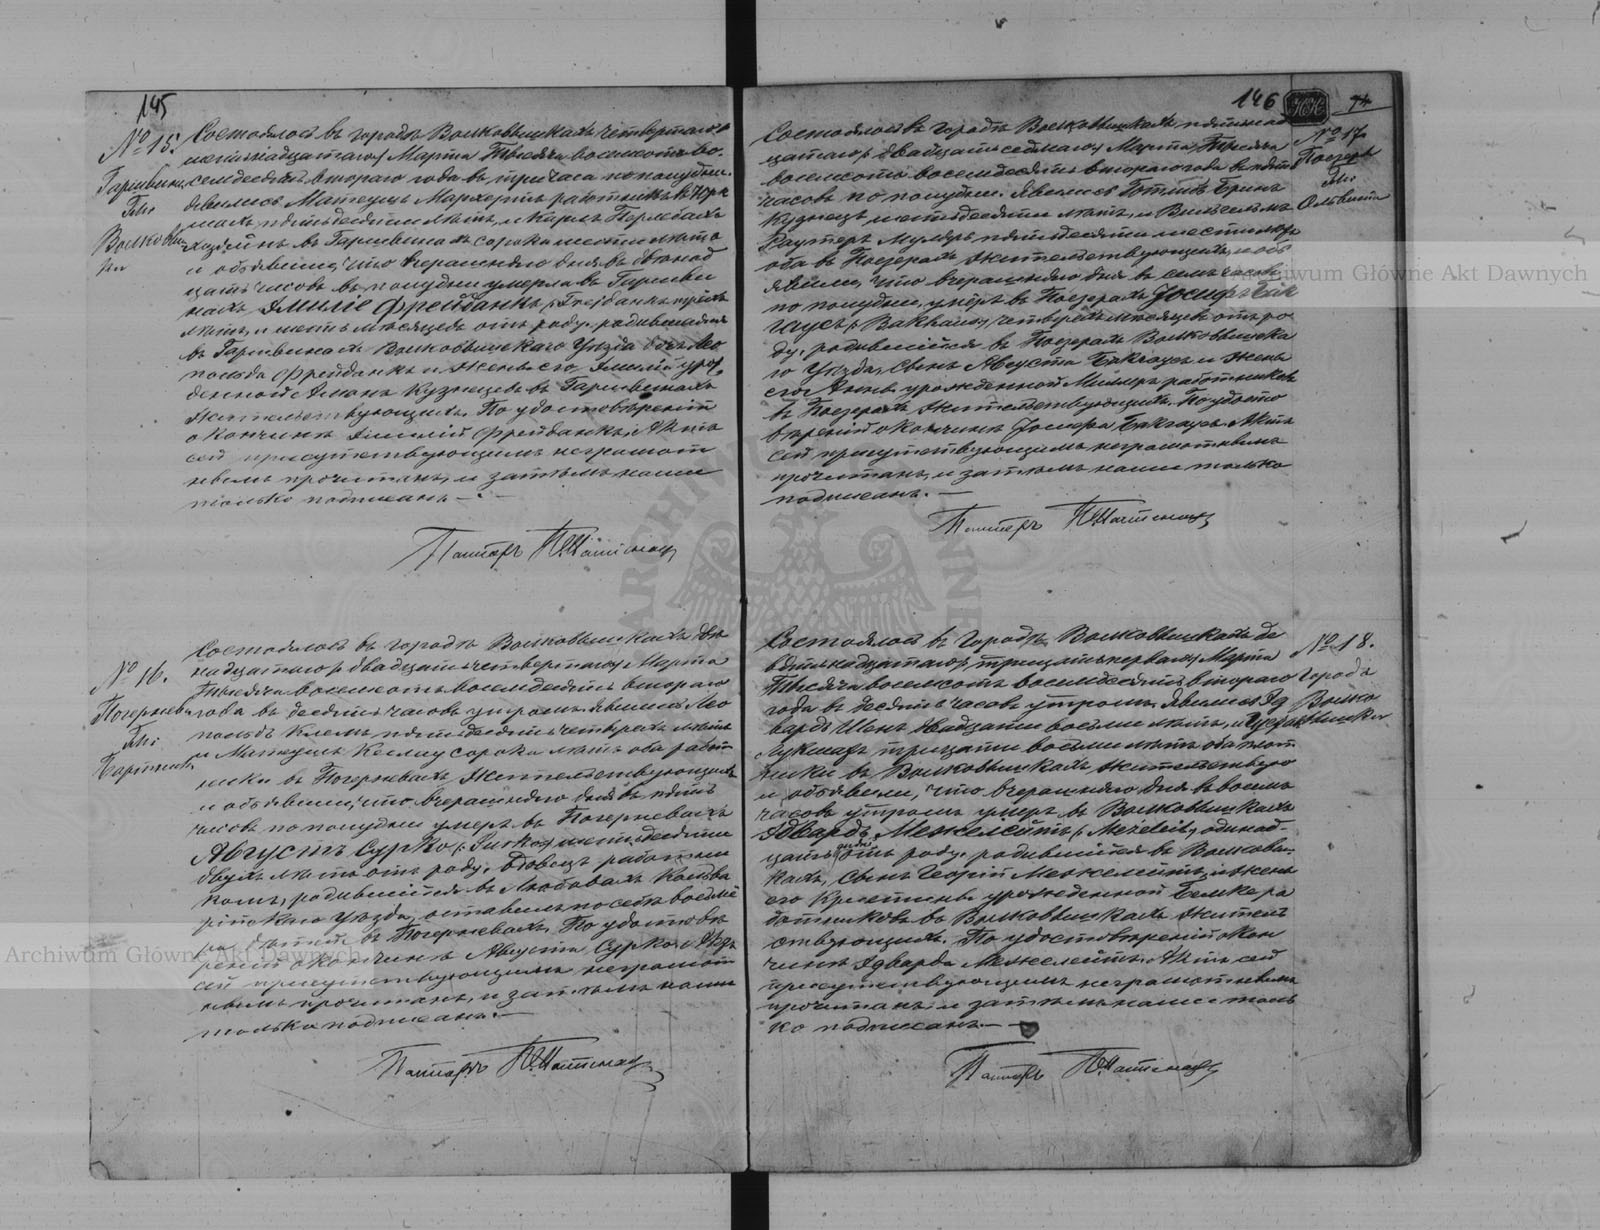 145
№ 15.
Гаршвины
Гмі
Волковы
Состоялось въ городѣ Волковышкахъ четвертаго /
шестнадцатаго / Марта Тысяча восемьсотъ во-
семдесятъ втораго года въ три часа по полудни.
явились Матеушъ работникъ
пятьдесяти лѣтъ, и Карлъ
въ Гаршвинахъ сорока шести лѣтъ
и объявили, что вчерашняго дня въ двѣнад
цать часовъ въ полудни умерла въ Гаршви
нахъ Эмиліе Фрейданкъ / Freidank / трехъ
лѣтъ и шесть мѣсяцевъ отъ роду, родившаяся
въ Гаршвинахъ Волковышскаго Уѣзда дочь Лео
польда Фрейданкъ и жены его Эмилій уро
денной Кузнецовъ въ Гаршвинахъ
жительствующихъ. По удостовѣреніи
о кончинѣ Эмилій Фрейданкъ, Актъ
сей присутствующимъ неграмот
нымъ прочитанъ, и затѣмъ нами
только подписанъ. —
Пасторъ
№ 16.
Погерневы
Гмі
Состоялось въ городѣ Волковышкахъ две
надцатаго / двадцать четвертаго / Марта
Тысяча восемьсотъ восемдесятъ втораго
года въ десять часовъ утромъ. явились Лео
польдъ Клемъ, пятидесять четырехъ лѣтъ
и Матеушъ сорока лѣтъ оба работ
ники въ Погерневахъ жительствующихъ
и объявили, что вчерашняго дня въ пять
часовъ по полудни умеръ въ Погерневахъ
Августъ Сурко / Surko / шестидесяти
двухъ лѣтъ отъ роду, вдовецъ работни
комъ, родившійся въ Любовахъ Кальва
рійскаго Уѣзда, оставилъ по себѣ
дѣтей въ Погерневахъ. По удостовѣ
реніи о кончинѣ Августа Сурко, Актъ
сей присутствующимъ неграмот
нымъ прочитанъ, и затѣмъ нами
только подписанъ. —
Пасторъ
146
74
№ 17
Поезеры
Гмі
Ольвита
Состоялось въ городѣ Волковышкахъ, пятьнад
цатаго / двадцать седмаго / Марта Тысяча
восемьсотъ восемдесятъ втораго года въ пять
часовъ по полудни. Явились Готлибъ
Кузнецъ шестидесяти лѣтъ, и Вильгельмъ
пятидесяти шести лѣтъ
оба въ Поезерахъ жительствующихъ, и объ
явили, что вчерашняго дня въ семь часовъ
по полудни, умеръ въ Поезерахъ Iосифъ Бак
гаусъ / Bakhaus / четырехъ мѣсяцевъ отъ ро
ду, родившійся въ Поезерахъ Волковышска
го Уѣзда, сынъ Августа Бакгаусъ и жены
его Анны урожденной Миллеръ работниковъ
въ Поезерахъ жительствующихъ. По удосто
вѣреніи о кончинѣ Iосифа Бакгаусъ, Актъ
сей присутствующимъ неграмотнымъ
прочитанъ, и затѣмъ нами только
подписанъ. —
Пасторъ
№ 18.
Городъ
Волко
вышки
Состоялось въ городѣ Волковышкахъ де
вятьнадцатаго / тридцать перваго / Марта
Тысяча восемьсотъ восемдесятъ втораго
года въ десять часовъ утромъ. Явились Эд
вардъ Шенъ двадцати восьми лѣтъ, и Густавъ
тридцати восьми лѣтъ оба
ники въ Волковышкахъ жительствую
и объявили, что вчерашняго дня въ восемь
часовъ утромъ умеръ въ Волковышкахъ
Эдвардъ Межелейтъ / Mezeleit / одинад-
цать дней отъ роду, родившійся въ Волковы
кахъ, сынъ Георгій Межелейтъ, и жены
его Кристины урожденной ра
ботниковъ въ Волковышкахъ житель
ствующихъ. По удостовѣреніи о кон
чинѣ Эдварда Межелейтъ, Актъ сей
присутствующимъ неграмотнымъ
прочитанъ и затѣмъ нами толь
ко подписанъ. —
Пасторъ
Archiwum Główne Akt Dawnych
Archiwum Główne Akt Dawnych